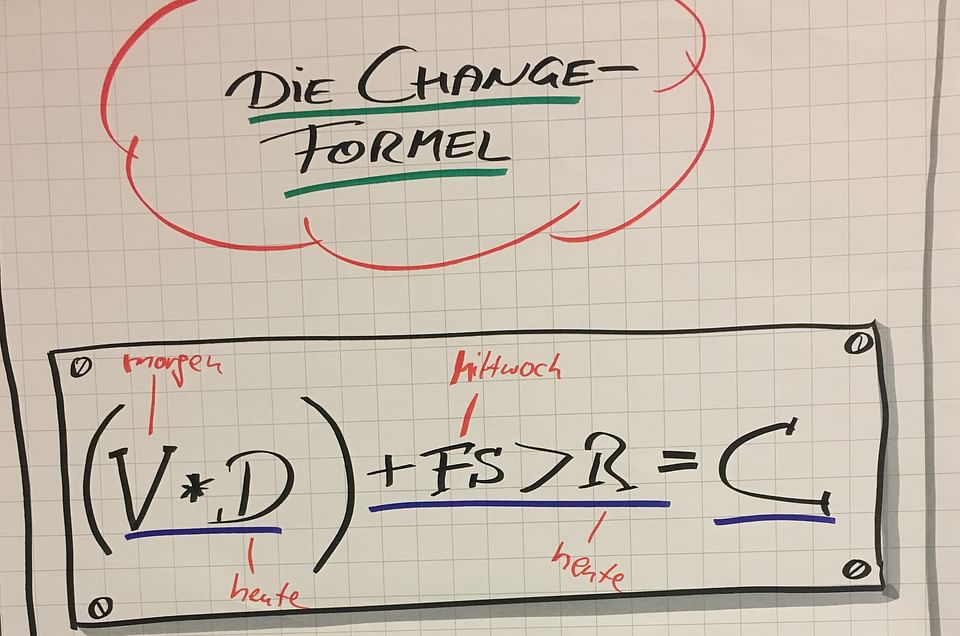 DIE CHANGE-
FORMEL
morgen
Mittwoch
(V * D) + FS > R = C
heute
heute